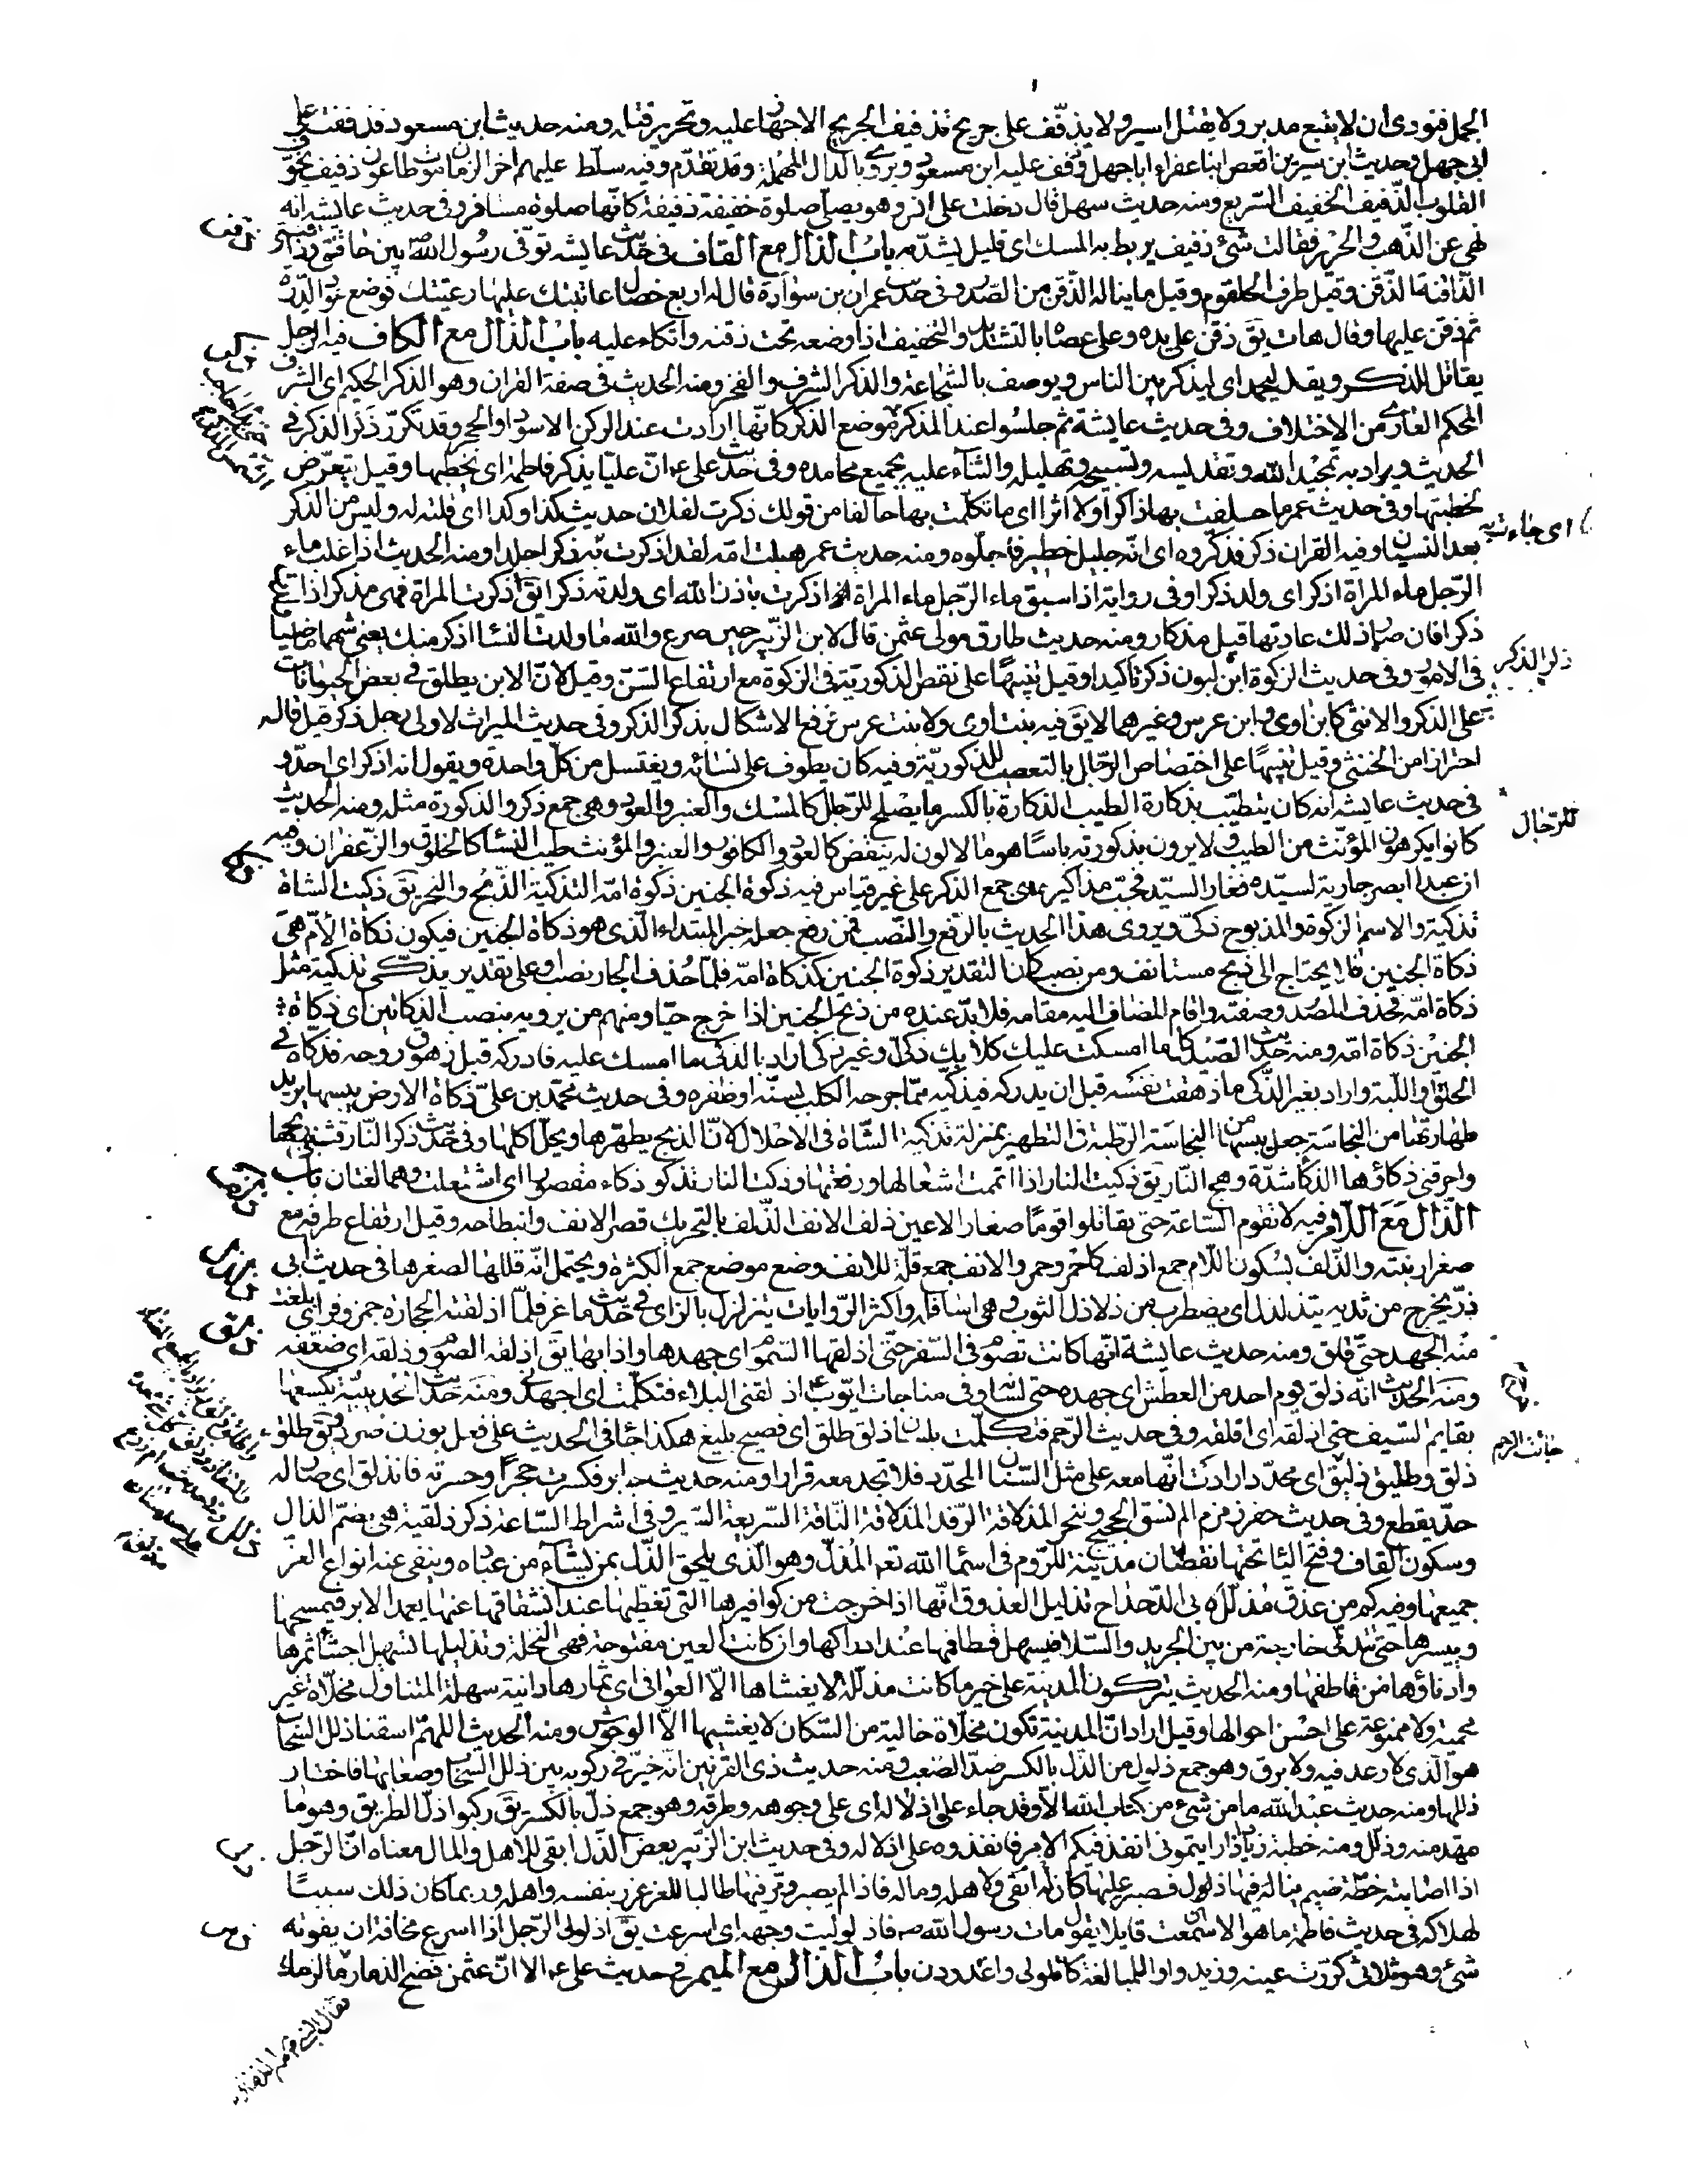 الجمل فنودى ان لا يتبع مدبر ولا يقتل اسير ولا يذفّف على جريح تذفيف الجريح الاجهاز عليه وتحرير قتله ومنه حديث ابن مسعود فذففت على
ابى جهل وحديث ابن سيرين اقعص ابنا عفراء اباجهل وذفف عليه ابن مسعود ويروى بالدال المهملة وقد تقدّم وفيه سلّط عليهم اخر الزمان موت طاعون ذفيف يحوّف
القلوب الذّفيف الخفيف السّريع ومنه حديث سهل قال دخلت على انس وهو يصلّى صلوة خفيفة ذفيفة كانّها صلوة مسافر وفى حديث عايشه انه
نهى عن الذّهب والحرير فقالت شئ ذفيف يربط به المسك اى قليل يشدّ به باب الذال مع القاف فى حديث عايشه توفّى رسول الله بين حاقنتى وذاقنتى
الذّاقنة الذّقن وقيل طرف الحلقوم وقيل ما يناله الذّقن من الصّدر وفى حديث عمران بن سوادة قال له اربع خصال عاتبتك عليها رعيّتك فوضع عود الدّرّة
ثم ذقن عليها وقال هات يقَ ذقن على يده وعلى عصاه بالتشديد والتخفيف اذا وضعه تحت ذقنه واتكاء عليه باب الذال مع الكاف فيه الرجل
يقاتل للذكر ويقاتل ليحمد اى ليذكر بين الناس ويوصف بالشجاعة والذكر الشرف والفخر ومنه الحديث فى صفة القران وهو الذكر الحكيم اى الشرف
المحكم العارى من الاختلاف وفى حديث عايشة ثم جلسوا عند المذكر موضع الذكر كانّها ارادت عند الركن الاسود او الحجر وقد تكرّر ذكر الذكر فى
الحديث ويراد به تمجيد الله وتقديسه وتسبيحه وتهليله والثناء عليه بجميع محامده وفى حديث على ع انّ عليّا يذكر فاطمة اى يخطبها وقيل يتعرّض
لخطبتها وفى حديث عمر ما حلفت بها ذاكرا ولا اثرا اى ما تكلّمت بها حالفا من قولك ذكرت لفلان حديث كذا وكذا اى قلته له وليس من الذكر
بعد النسيان وفيه القران ذكر فذكّروه اى انّه جليل خطير فاجلّوه ومنه حديث عمر هبلت امّه لقد اذكرت به ذكرا جلدا ومنه الحديث اذا غلب ماء
الرّجل ماء المراة اذكرا اى ولدا ذكرا وفى رواية اذا سبق ماء الرّجل ماء المراة اذكرت باذن الله اى ولدته ذكرا يقَ اذكرت المراة فهى مذكر اذا ولدت
ذكرا فان صار ذلك عادتها قيل مذكار ومنه حديث طارق مولى عثمن قال لابن الزّبير حين صرع والله ما ولدت النساء اذكر منك يعنى شهما ماضيا
فى الامور وفى حديث الزكوة ابن لبون ذكر تاكيدا وقيل تنبيها على نقص الذكوريّة فى الزكوة مع ارتفاع السّن وقيل لانّ الابن يطلق فى بعض الحيوانات
على الذكر والانثى كابن اوى وابن عرس وغيرهما لا يقَ فيه بنت اوى ولا بنت عرس فرفع الاشكال بذكر الذكر وفى حديث الميراث لاولى رجل ذكر قيل قاله
احترازا من الخنثى وقيل تنبيها على اختصاص الرّجال بالتعصيب للذكوريّة وفيه كان يطوف على نسائه ويغتسل من كلّ واحدة ويقول انه اذكر اى احدّ و
فى حديث عايشه انه كان يتطيّب بذكارة الطيب الذكارة بالكسر ما يصلح للرّجال كالمسك والعنبر والعود وهى جمع ذكر والذكورة مثله ومنه الحديث
كانوا يكرهون المؤنّث من الطيب ولا يرون بذكورته باسا هو ما لا لون له ينفض كالعود والكافور والعنبر والمؤنث طيب النساء كالخلوق والزّعفران وفيه
ان عبدا ابصر جارية لسيّده فغار السيّد فجبّ مذاكيره هى جمع الذكر على غير قياس فيه ذكوة الجنين ذكوة امّه التذكية الذّبح والنحر يقَ ذكيت الشاة
تذكية والاسم الزكوة والمذبوح ذكىّ ويروى هذا الحديث بالرّفع والنّصب فمن رفع جعله خبر المبتداء الّذى هو ذكاة الجنين فيكون ذكاة الأمّ هى
ذكاة الجنين فلا يحتاج الى ذبح مستانف ومن نصب كان التقدير ذكوة الجنين كذكاة امّه فلمّا حذف الجار نصب او على تقدير يذكّى تذكية مثل
ذكاة امّه فحذف المصدر وصفته واقام المضاف اليه مقامه فلا بدّ عنده من ذبح الجنين اذا خرج حيّا ومنهم من يرويه بنصب الذكاتين اى ذكاة
الجنين ذكاة امّه ومنه حديث الصّيد كل ما امسكت عليك كلابك ذكىّ وغير ذكى اراد بالذكى ما امسك عليه فادركه قبل زهوق روحه فذكّاه فى
الحلق او اللّبّة واراد بغير الذّكى ما زهقت نفسه قبل ان يدركه فيذكّيه ممّا جرحه الكلب بسنّه او ظفره وفى حديث محمّد بن علىّ ذكاة الارض يبسها يريد
طهارتها من النجاسة جعل يبسها من النجاسة الرّطبة فى التطهير بمنزلة تذكية الشّاة فى الاحلال لانّ الذبح يطهّرها ويحلّ اكلها وفى حديث ذكر النّار قشبنى ريحها
واحرقنى ذكاؤها الذكا شدّة وهج النّار يقَ ذكيت النار اذا اتممت اشعالها ورفعتها وذكت النار تذكو ذكاء مقصور اى اشتعلت وهما لغتان باب
الذّال مع اللّام فيه لا تقوم السّاعة حتى تقاتلوا قوما صغار الاعين ذلف الانف الذّلف بالتحريك قصر الانف وانبطاحه وقيل ارتفاع طرفه مع
صغر ارنبته والذّلف بسكون اللّام جمع اذلف كاحمر وحمر والانف جمع قلّة للانف وضع موضع جمع الكثرة ويحتمل انّه قللها لصغرها فى حديث ابى
ذرّ يخرج من ثديه يتذلذل اى يضطرب من ذلاذل الثوب وهى اسافله واكثر الرّوايات يتزلزل بالزاى فى حديث ماعز فلمّا اذلقته الحجارة جمز وفرّ اى بلغت
منه الجهد حتّى قلق ومنه حديث عايشة انّها كانت تصوم فى السّفر حتّى اذلقها السّموم اى جهدها واذابها يقَ اذلقه الصوم وذلقه اى ضعّفه
ومنه الحديث انّه ذلق يوم احد من العطش اى جهده حتى لسانه وفى مناجات ايّوب ع اذلقنى البلاء فتكلّمت اى اجهدنى ومنه حديث الحديبيّة يكسعها
بقايم السّيف حتى اذلقه اى اقلقه وفى حديث الرّحم فتكلّمت بلسان ذلق طلق اى فصيح بليغ هكذا جاء فى الحديث على فعل بوزن صرد ويقَ طلق
ذلق وطليق ذليق اى محدّد ارادت انّها معه على مثل السّنان المحدّد فلا تجد معه قرارا ومنه حديث جابر فكسرت حجرا وحسرته فانذلق اى صار له
حدّ يقطع وفى حديث حفر زمزم الم نسق الحجيج وننحر المذلاقة الرّفد المذلاقة النّاقة السّريعة السّير وفى اشراط السّاعة ذكر ذلقية هى بضمّ الذال
وسكون القاف وفتح الياء تحتها نقطتان مدينة للرّوم فى اسماء الله تعه المذلّ وهو الّذى يلحق الذّل بمن يشاء من عباده وينفى عنه انواع العزّ
جميعها وفيه كم من عذق مذلّل لابى الدّحداح تذليل العذوق انّها اذا خرجت من كوافيرها التى تغطّيها عند انشقاقها عنها يعمد الابر فيمسحها
وييسرها حتى تتدلّى خارجة من بين الجريد والسّلا فيسهل قطافها عند ادراكها وان كانت العين مفتوحة فهى النخلة وتذليلها تسهيل اجتناء ثمرها
وادناؤها من قاطفها ومنه الحديث يتركون المدينة على خير ما كانت مذلّلة لا يغشاها الاّ العوافى اى ثمارها دانية سهلة المتناول مخلّاة غير
محميّة ولا ممنوعة على احسن احوالها وقيل اراد انّ المدينة تكون مخلّاة خالية من السّكان لا يغشيها الاّ الوحوش ومنه الحديث اللّهمّ اسقنا ذلل السّحاب
هو الذى لا رعد فيه ولا برق وهو جمع ذلول من الذّل بالكسر ضدّ الصّعب ومنه حديث ذى القرنين انّه خيّر فى ركوبه بين ذلل السّحاب وصعابها فاختار
ذللها ومنه حديث عبد الله ما من شئ من كتاب الله الاّ وقد جاء على اذلاله اى على وجوهه وطرقه وهو جمع ذلّ بالكسر يقَ ركبوا ذلّ الطريق وهو ما
مهّد منه وذلّل ومنه خطبة زياد اذا رايتمونى انفذ فيكم الامر فانفذوه على اذلاله وفى حديث ابن الزّبير بعض الذّل ابقى للاهل والمال معناه انّ الرّجل
اذا اصابته خطّة ضيم يناله فيها ذلول فصبر عليها كان ابقى له ولاهله وماله فاذا لم يصبر ومرّ فيها طالبا للعز غرر بنفسه واهله وربما كان ذلك سببا
لهلاكه فى حديث فاطمة ما هو الا ان سمعت قايلا يقول مات رسول الله ص فاذلوليت وجهه اى اسرعت يقَ اذلولى الرّجل اذا اسرع مخافة ان يفوته
شئ وهو ثلاثى كرّرت عينه وزيد واوا للمبالغة كاقلولى واغدودن باب الذال مع الميم فى حديث على ع الا انّ عثمن فضح الذمار ما لزمك
اى جاءت به
ذكر الذكر
للرّجال